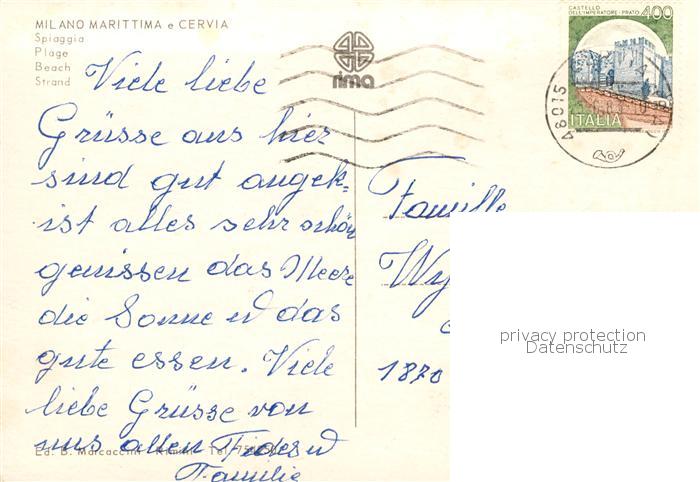 MILANO MARITTIMA e CERVIA
Spiaggia
Plage
Beach
Strand
rima
CASTELLO
DELL'IMPERATORE - PRATO 400
ITALIA
48015
Viele liebe
Grüsse aus hier
sind gut angek=
ist alles sehr schön
genissen das Meere
die Sonne u das
gute essen. Viele
liebe Grüsse von
uns allen u
Familie
Ed. B. Marcaccini - Rimini - Tel.
Familie
Wy
1870
privacy protection
Datenschutz